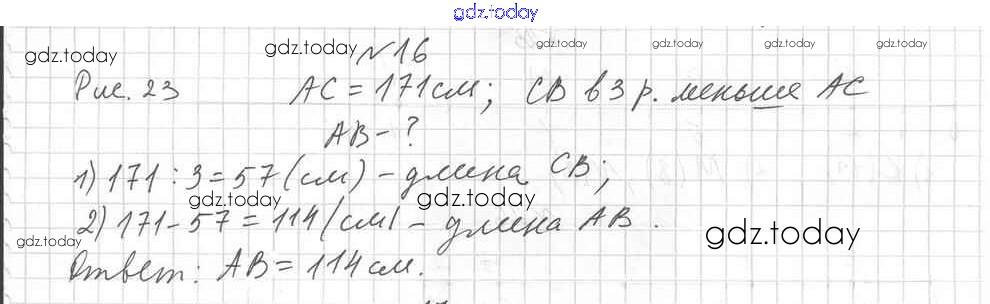 gdz.today
gdz.today gdz.today №16 gdz.today gdz.today gdz.today gdz.today
Рис. 23 AC = 171 см; CB в 3 р. меньше AC
AB - ?
1) 171 : 3 = 57 (см) - длина CB;
gdz.today gdz.today
2) 171 - 57 = 114 (см) - длина AB.
gdz.today gdz.today
Ответ: AB = 114 см.